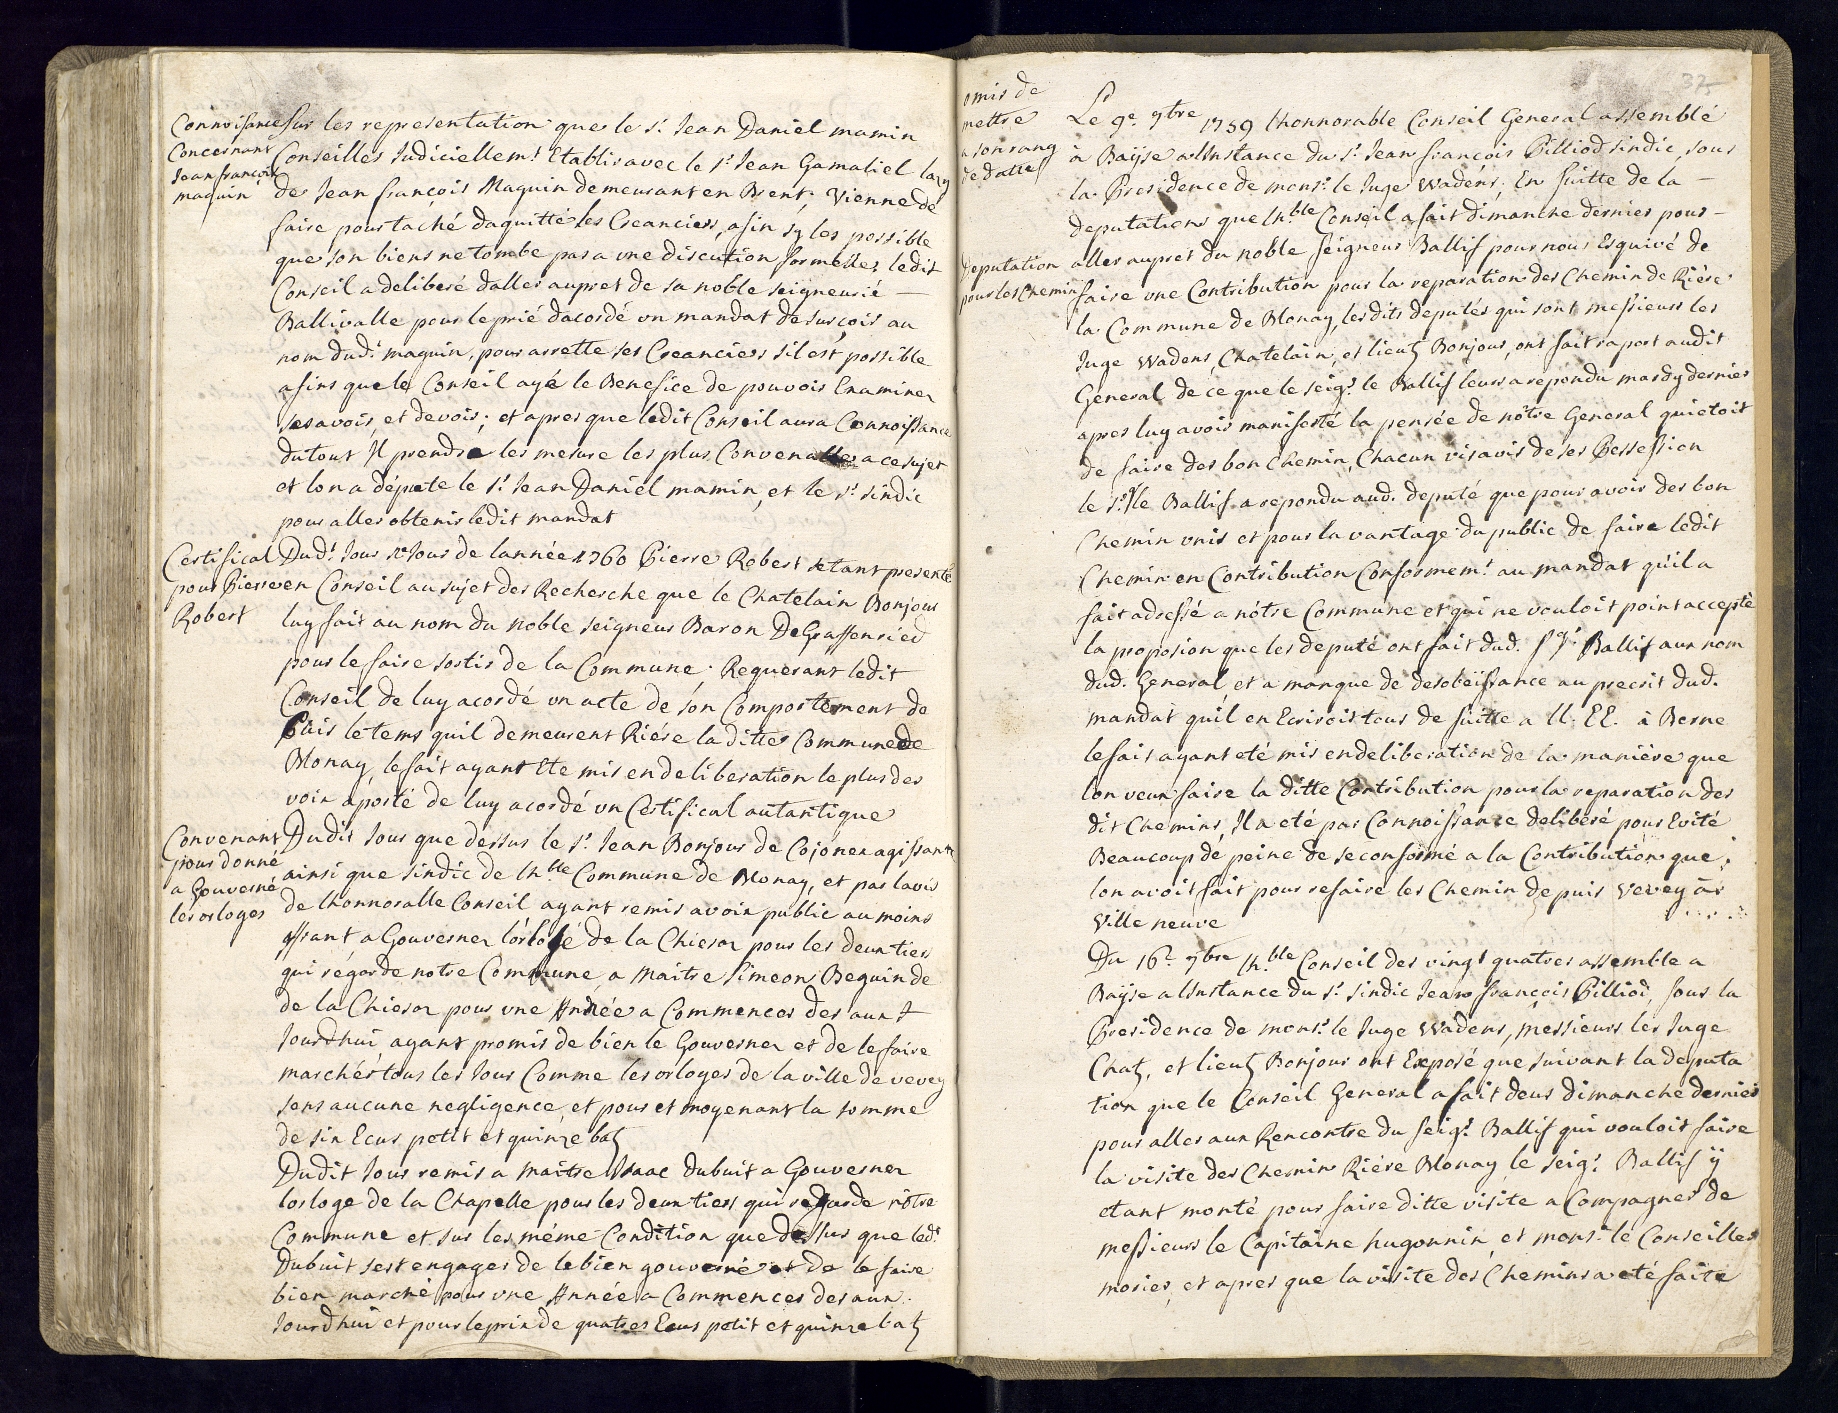 Connoisance
Concernant
Jean françois
maquin
Sur les representation que le Sr. Jean Daniel mamin
Conseiller Judiciellemt. Etabliravec le Sr. Jean Gamaliel
de Jean françois Maquin demeurant en Brent, Vienne de
faire pour taché daquitté les Creanciers, afin sy les possible
que son biens ne tombe pas a une discution formelle, ledit
Conseil a deliberé daller aupres de sa noble seigneurié
Ballivalle pour le prié dacordé un mandat de surçois au
nom dudt. maquin, pour arrette ses Creanciers sil est possible
afins que le Conseil ayé le Benefice de pouvoir Examiner
ses avoir, et devoir; et apres que ledit Conseil aura Connoissance
du tout Il prendre les mesure les plus Convenalles a ce sujet
et lon a députe le Sr. Jean Daniel mamin, et le Sr. sindic
pour aller obtenir ledit mandat
Certifical
pour Pierre
Robert
Dudt. Jour de lannée 1760 Pierre Robert setant presenté
en Conseil au sujet des Recherche que le Chatelain Bonjour
luy fait au nom du noble seigneur Baron DeGraffenried
pour le faire sortir de la Commune; Requerant ledit
Conseil de luy acordé un acte de son Comportement de
Puis le tems quil demeurent Riére la ditte Commune de
Blonay, le fait ayant Ete mis en deliberation le plus des
voix a porté de luy acordé un Certifical autantique
Convenant
pour donné
a Gouverné
les orloges
Dudit Jour que dessus le Sr. Jean Bonjour de Cojonex agissant
ainsi que sindic de Lh.ble Commune de Blonay, et par lavis
de lhonnoralle Conseil ayant remis a voix public au moins
ffrant a Gouverner lorlogé de la Chiesaz pour les deux tiers
qui régarde notre Commune, a maitre Simeon Beguin de
de la Chiesaz pour une Année a Commencer des aux J
Jourdhui ayant promis de bien le Gouverner et de le faire
marchér tous les Jour Comme les orloges de la ville de vevey
sens aucune negligence, et pour et moyenant la somme
de six Ecus petit et quinze batz
Dudit Jour remis a maitre Isaac Dubuit a Gouverner
lorloge de la Chapelle pour les deux tiers qui regarde nôtre
Commune et sur les méme Condition que dessus que ledt.
Dubuit sest engager de le bien gouverné et de le faire
bien marché pour une Année a Commencer des aux
Jourdhui et pour le prix de quatres Ecus petit et quinze batz
37
omis de
mettre
a son rang
de datte
Le 9e. 9bre 1759 lhonnorable Conseil General assemblé
à Baÿse alInstance du Sr. Jean françois Pilliod sindic, sous
la Presidence de monsr. le Juge Wadens; En suitte de la
deputation que lh.ble Conseil a fait dimanche dernier pour
Deputation
pour les Chemin
aller aupres du noble seigneur Ballif pour nous Esquivé de
faire une Contribution pour la reparation des Chemin de Riére
la Commune de Blonay, lesdits deputés qui sont messieurs les
Juge Wadens, Chatelain, et lieutz Bonjour, ont fait raport audit
General de ce que le seigr. le Ballif leurs a repondu mardy dernier
apres luy avoir manifesté la pensée de nôtre General qui etoit
de faire des bon Chemin, Chacun visavis de ses Possession
le Sr. le Ballif a repondu aud. deputé que pour avoir des bon
Chemin unis et pour la vantage du public de faire ledit
Chemin en Contribution Conformemt. au mandat qu'il a
fait adressé a nôtre Commune et qui ne vouloit point accepté
la proposion que les deputé ont fait dud. Sgr. Ballif aux nom
dud. General, et a manque de desobeïssance au precrit dud.
mandat quil en Ecriroit tous de suitte a LL. EE. à Berne
le fait ayant eté mis en deliberation de la maniére que
lon veux faire la ditte Contribution pour la reparation des
dit Chemins, Il a eté par Connoissance deliberé pour Evité
Beaucoup de peine de se conformé a la Contribution que
lon avoit fait pour refaire les Chemin depuis Vevey à
Ville neuve
Du 16e. 9bre lh.ble Conseil des vingt quatres assemble a
Baÿse a lInstance du Sr. sindic Jean françois Pilliod, sous la
Presidence de monsr. le Juge Wadens, messieurs les Juge
Chatz, et lieutz Bonjour ont Exposé que suivant la deputa
tion que le Conseil General a fait deus dimanche dernier
pour aller aux Rencontre du seigr. Ballif qui vouloit faire
la visite des Chemin Riére Blonay le seigr. Ballif ÿ
etant monté pour faire ditte visite a Compagner de
messieurs le Capitaine hugonnin, et monsr. le Conseiller
morier, et apres que la visite des Chemins a eté faite